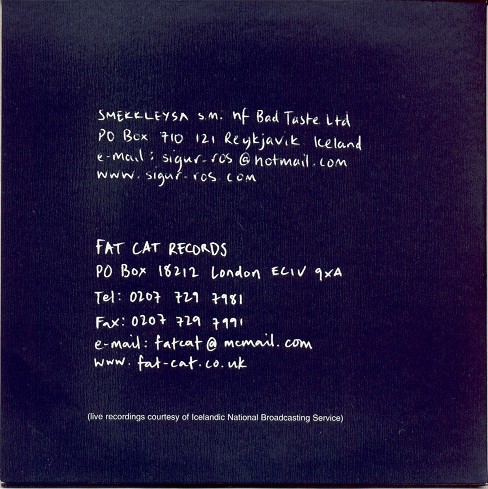 SMEKKLEYSA s.m. hf Bad Taste Ltd
PO Box 710 121 Reykjavik Iceland
e-mail: sigur-ros@hotmail.com
www.sigur-ros.com
FAT CAT RECORDS
PO Box 18212 London EC1V 9XA
Tel: 0207 729 7981
Fax: 0207 729 7991
e-mail: fatcat@mcmail.com
www.fat-cat.co.uk
(live recordings courtesy of Icelandic National Broadcasting Service)